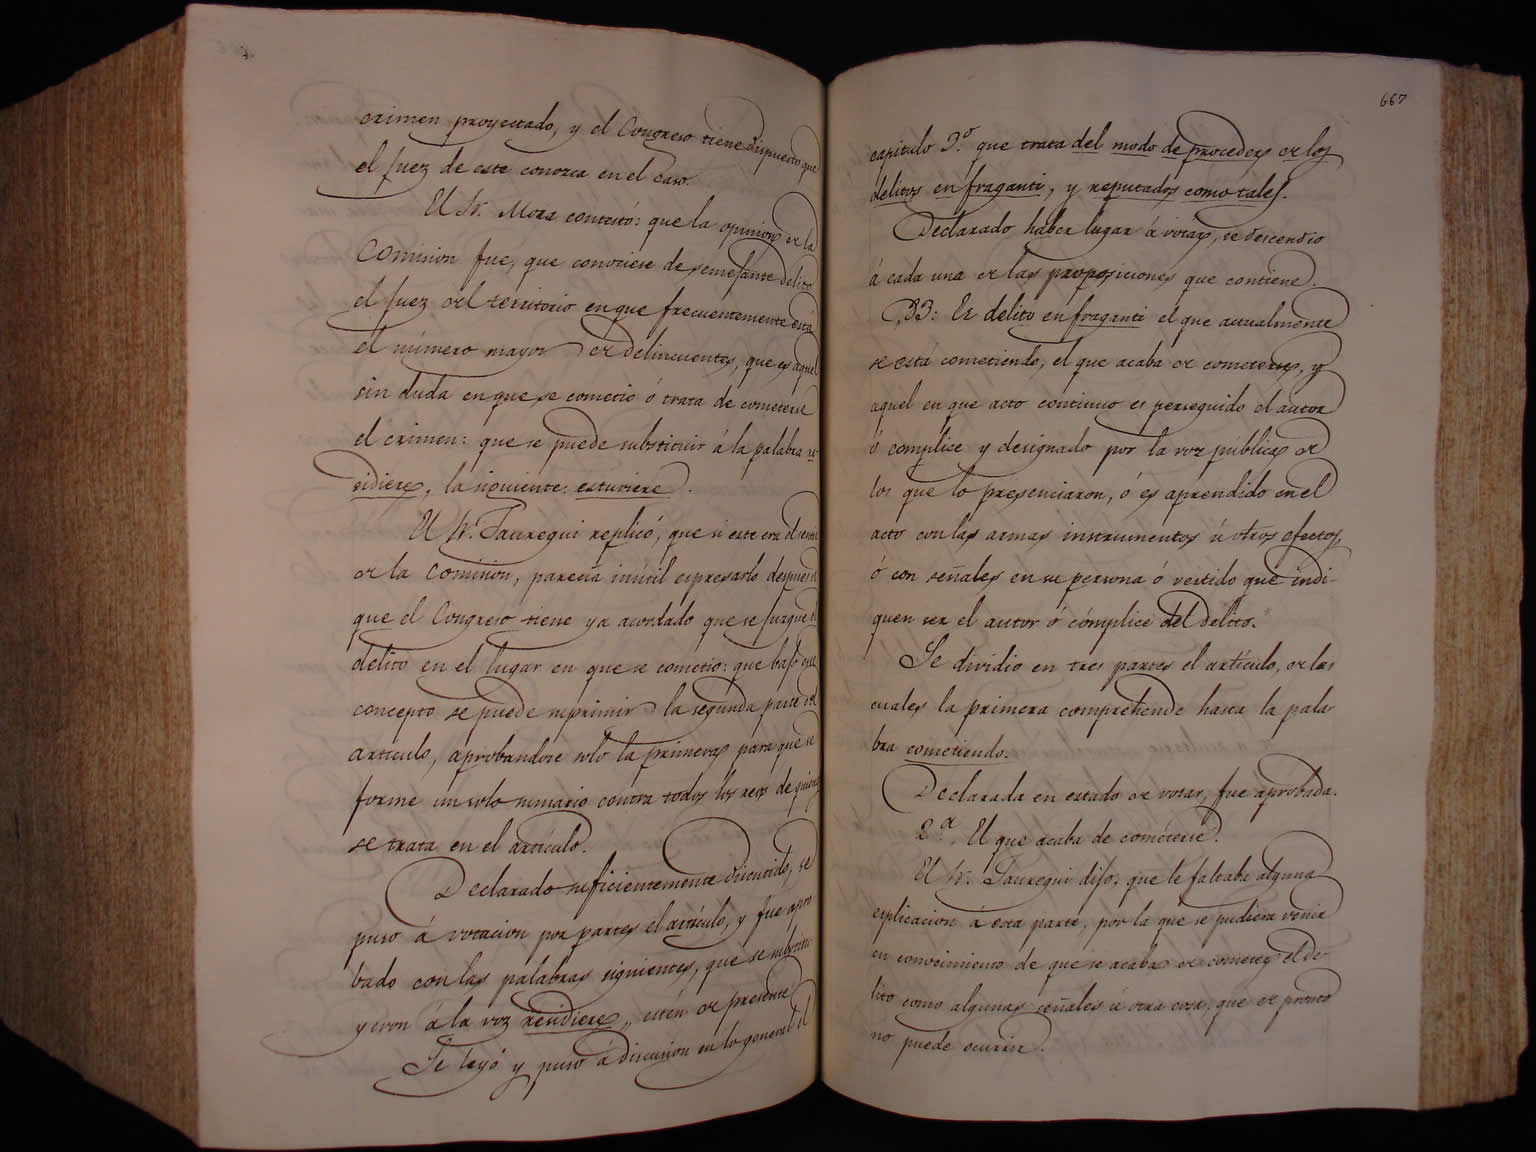 crimen proyectado, y el Congreso tiene dispuesto que
el juez de este conozca en el caso.
El Sr. Mora contestó: que la opinion de la
Comision fue, que conociese de semejante delito
el juez del territorio en que frecuentemente está
el número mayor de delincuentes, que es aquel
sin duda en que se cometió ó trata de cometerse
el crimen: que se puede substituir á la palabra re-
sidiere, la siguiente: estuviere.
El Sr. Jauregui replicó, que si este era el
de la Comision, parecia inútil espresarlo despues
que el Congreso tiene ya acordado que se juzgue el
delito en el lugar en que se cometio: que bajo este
concepto se puede suprimir la segunda parte del
artículo, aprobandose solo la primera para que se
forme un solo sumario contra todos los reos de quienes
se trata en el artículo.
Declarado suficientemente discutido, se
puso á votacion por partes el artículo, y fue apro-
bado con las palabras siguientes, que se substitu-
yeron á la voz residiere, "estén de presente
Se leyó y puso á discusion en lo general el
667
capitulo 3.º que trata del modo de proceder en los
delitos en fraganti, y reputados como tales.
Declarado haber lugar á votar, se descendio
á cada una de las proposiciones que contiene.
"33: Es delito en fraganti el que actualmente
se está cometiendo, el que acaba de cometerse, y
aquel en que acto continuo es perseguido el autor
ó complice y designado por la voz pública de
los que lo presenciaron, ó es aprendido en el
acto con las armas instrumentos ú otros efectos,
ó con señales en su persona ó vestido que indi-
quen ser el autor ó cómplice del delito."
Se dividio en tres partes el artículo, de las
cuales la primera comprehende hasta la pala-
bra cometiendo.
Declarada en estado de votar, fue aprobada.
2.ª El que acaba de cometerse.
El Sr. Jauregui dijo: que le faltaba alguna
esplicacion á esta parte, por la que se pudiera venir
en conocimiento de que se acaba de cometer el de-
lito como algunas señales ú otra cosa, que de pronto
no puede ocurrir.